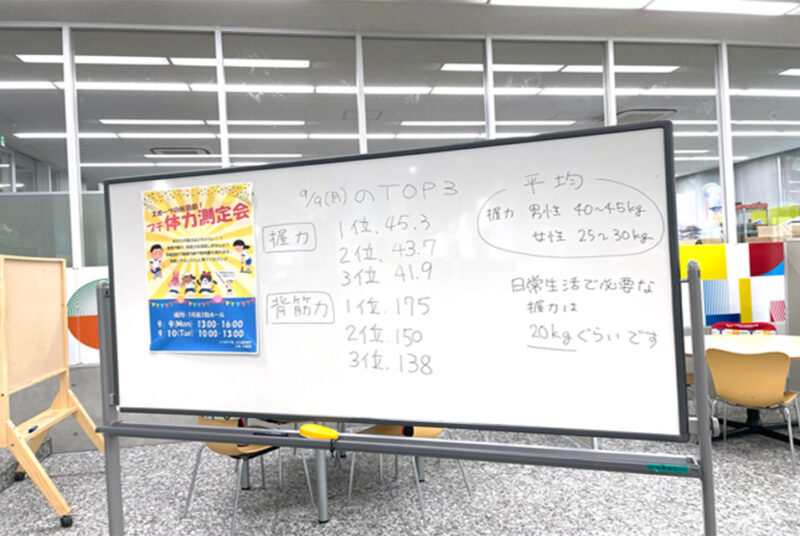 スポーツの秋目前！
プチ体力測定会
9/9(Mon) 13:00-16:00
9/10(Tue) 10:00-13:00
9/9(月)のTOP3
握力
1位、45.3
2位、43.7
3位、41.9
背筋力
1位、175
2位、150
3位、138
平均
握力 男性 40〜45kg
女性 25〜30kg
日常生活で必要な
握力は
20kgぐらいです